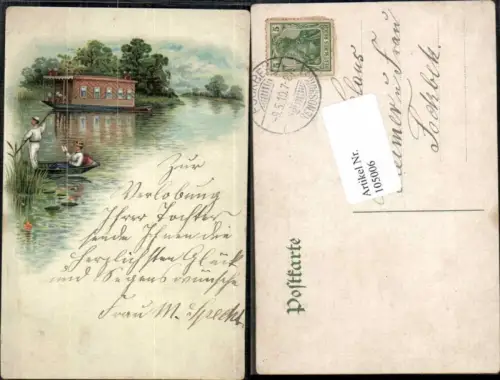 Zur
Verlobung
Ihrer Tochter
sende Ihnen die
herzlichsten Glück
und Segenswünsche
Frau M. Specht
5
Artikel Nr.
105006
Postkarte
u Frau